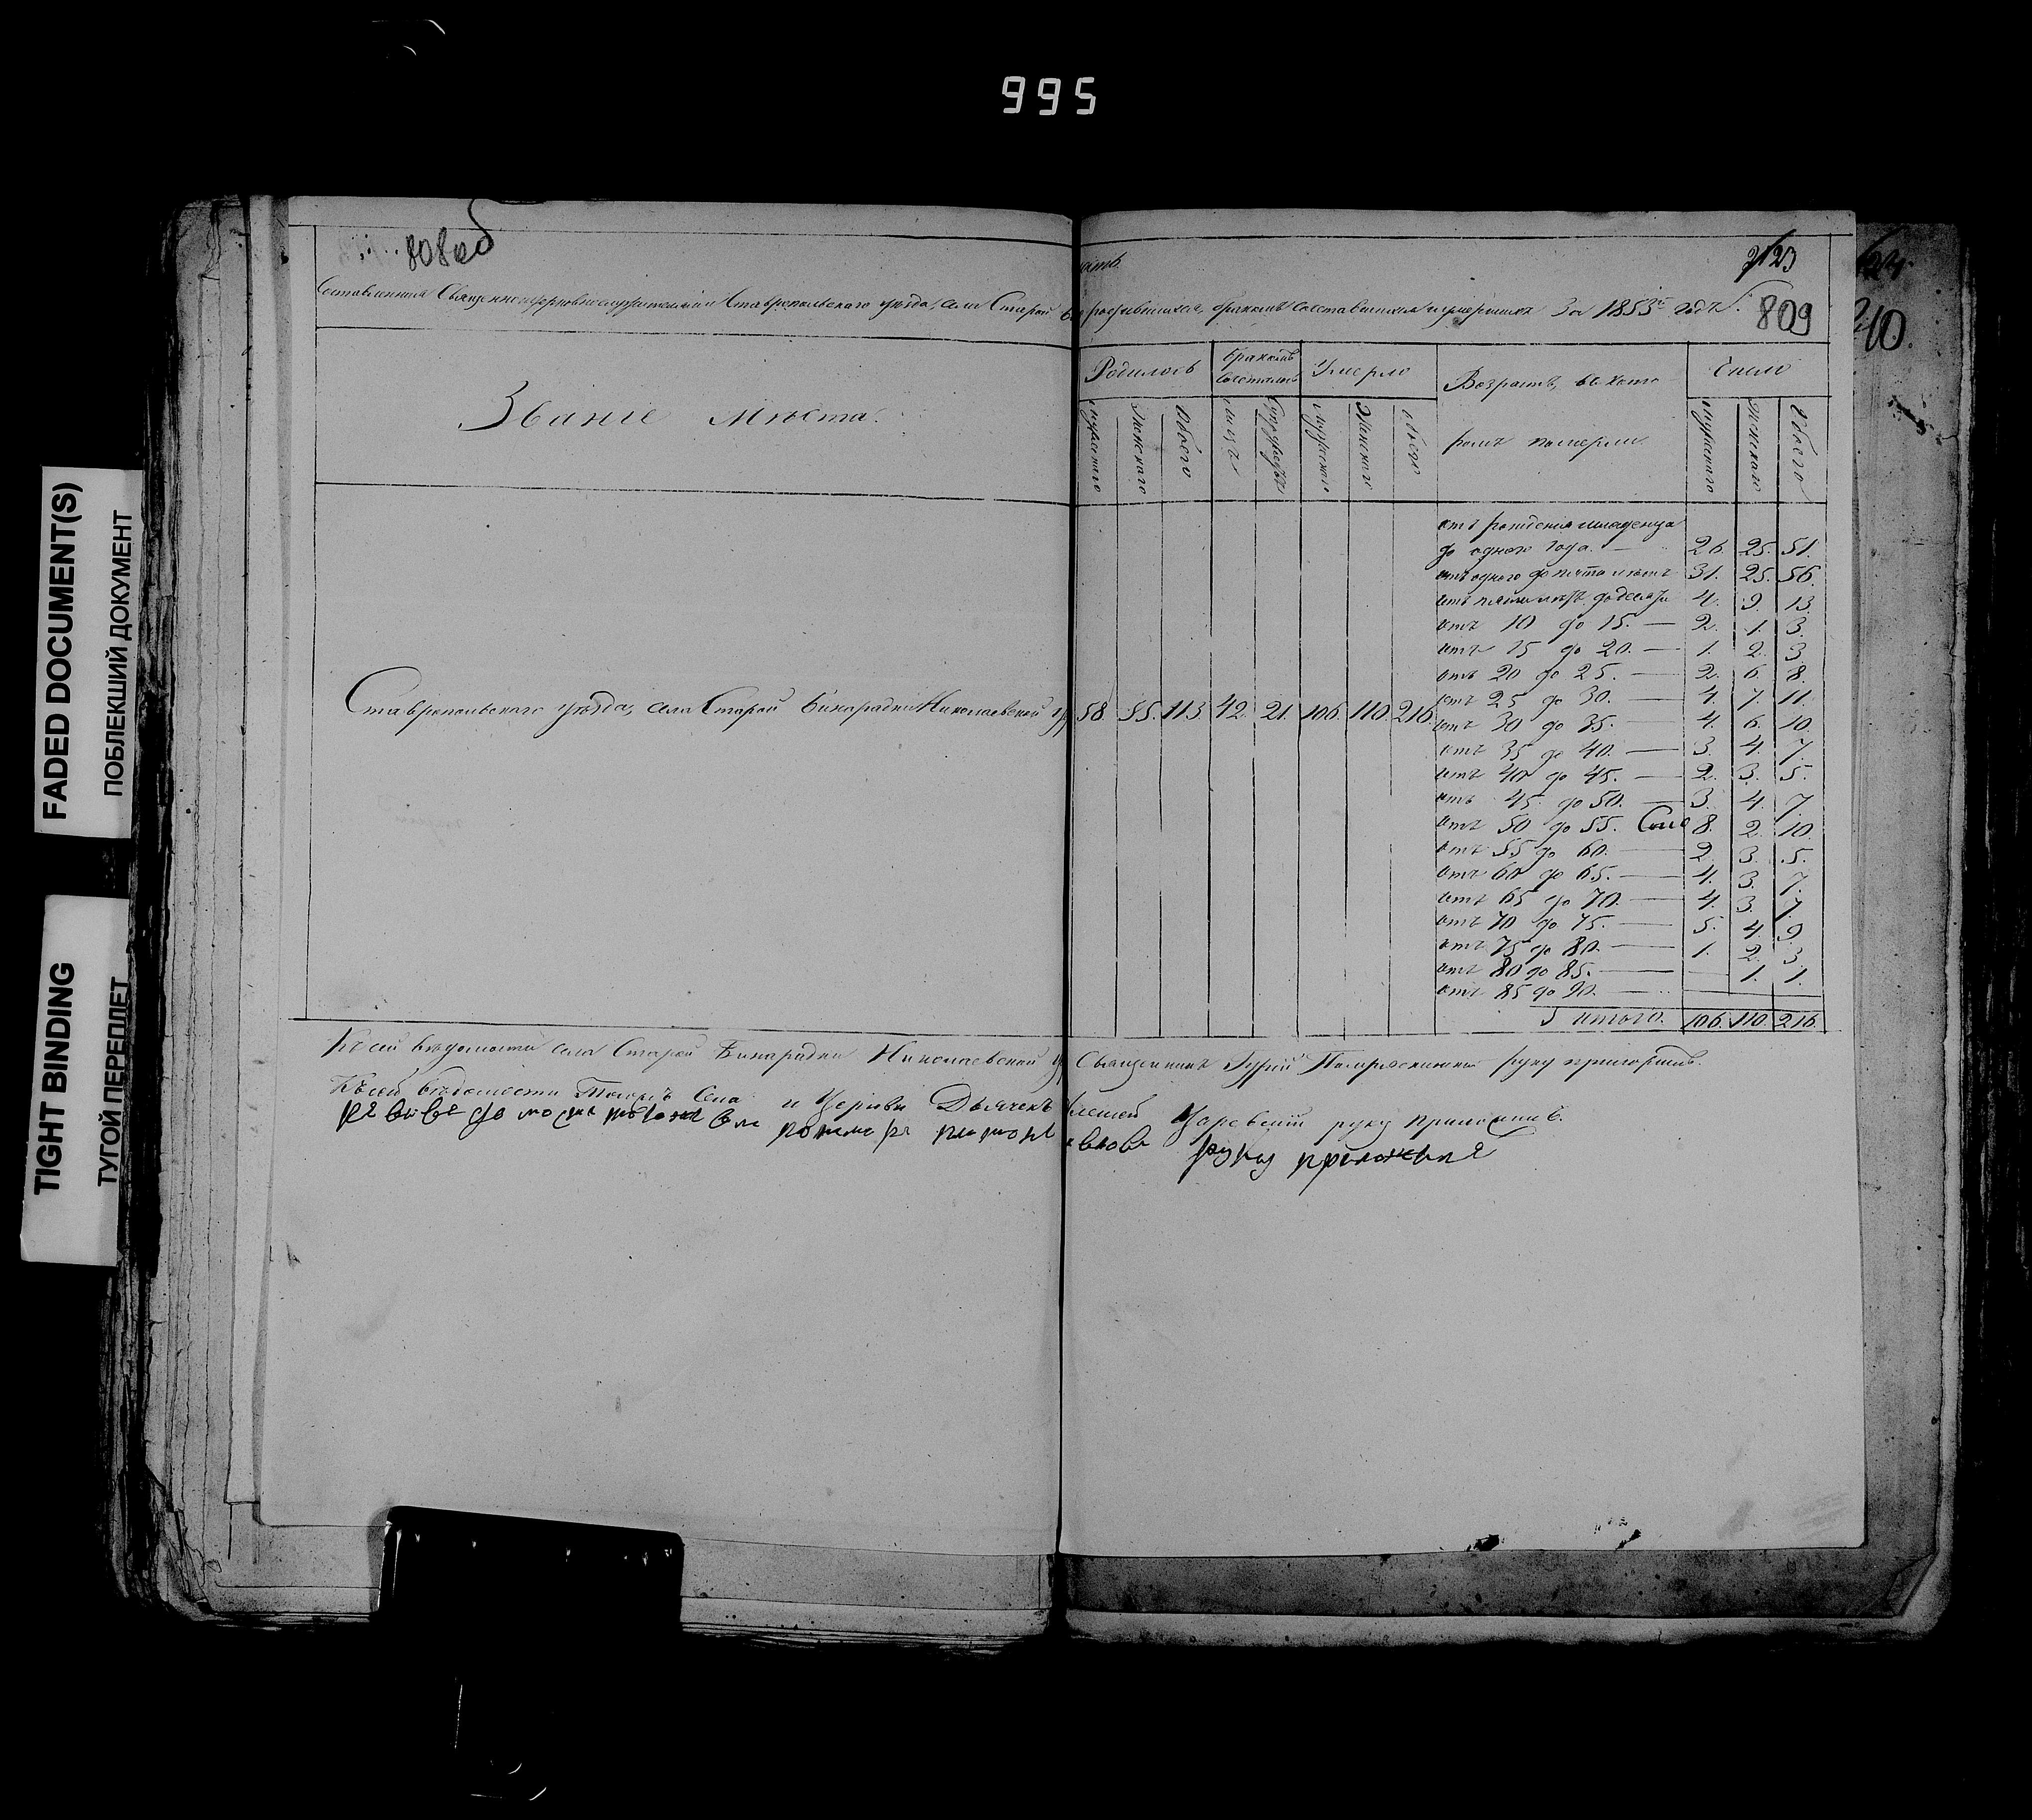 995
808 об
2/23
Составленная Священноцерковнослужителями Ставропольскаго уезда, села Старой родившихся, бракомъ сочетавшихся и умершихъ За 1853й годъ.
809
24
10.
Званіе Места.
Родилось
Бракомъ сочеталось
Умерло
Возрастъ, въ кото-
ромъ померли
Число
Мужескаго
Женскаго
Обоего
лицъ
Супружествъ
Мужескаго
Женскаго
Обоего
Мужескаго
Женскаго
Обоего
Ставропольскаго уезда, села Старой Бинарадки Николаевской 58. 55. 113 42. 21. 106. 110 216.
отъ рождения младенца
до одного года. — 26. 25. 51.
отъ одного до пяти летъ 31. 25. 56.
отъ пяти летъ до десяти 4. 9. 13.
отъ 10 до 15. — 2. 1. 3.
отъ 15 до 20. — 1. 2. 3
отъ 20 до 25. — 2. 6. 8.
отъ 25 до 30. — 4. 7. 11.
отъ 30 до 35. — 4. 6. 10.
отъ 35 до 40. — 3. 4. 7.
отъ 40 до 45. — 2. 3. 5.
отъ 45. до 50. — 3. 4. 7.
отъ 50 до 55. 8. 2. 10.
отъ 55 до 60. — 2. 3. 5.
отъ 60 до 65. — 4. 3. 7.
отъ 65 до 70. — 4. 3. 7.
отъ 70 до 75. — 5. 4. 9
отъ 75 до 80. — 1. 2. 3.
отъ 80 до 85. — — 1. 1.
отъ 85 до 90. —
Итого. 106. 110. 216.
Къ сей ведомости села Старой Бинарадки Николаевской Священникъ Гурій руку приложилъ.
Къ сей ведомости Тогожъ Села и Церкви Дьячекъ Алексей Царевскій руку приложилъ.
пономарь руку приложилъ
FADED DOCUMENT(S)
ПОБЛЕКШИЙ ДОКУМЕНТ
TIGHT BINDING
ТУГОЙ ПЕРЕПЛЕТ